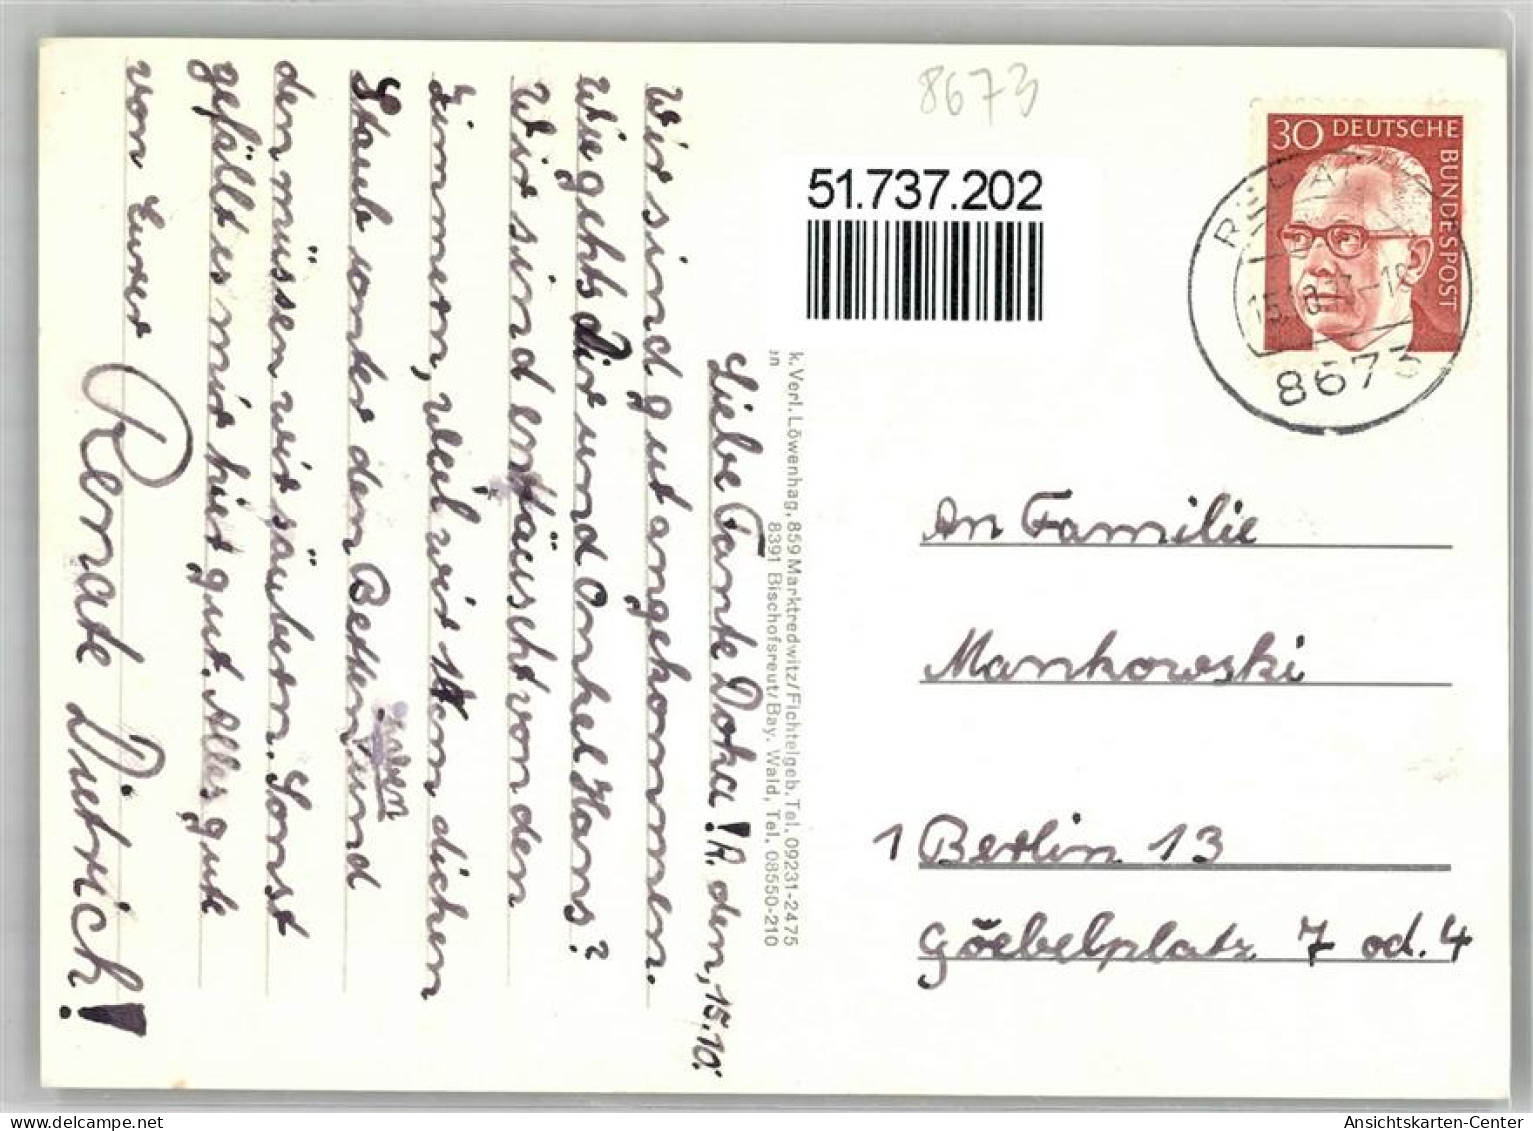 8673
51.737.202
30 DEUTSCHE
BUNDESPOST
8673
An Familie
Mankowski
1 Berlin 13
Göebelplatz 7 od. 4
k. Verl. Löwenhag, 859 Marktredwitz/Fichtelgeb. Tel. 09231-2475
8391 Bischofsreut/Bay. Wald, Tel. 08550-210
Liebe Tante Doka! R. den, 15.10.
Wir sind gut angekommen.
Wie gehts Dir und Onkel Hans?
Wir sind entäuscht von den
Zimmern, weil wir 14cm dichen
Staub unter den Betten haben und
den müssen wir säubern. Sonst
gefällt es mir hier gut. Alles gute
von Eurer Renate Dietrich!
oldthing.de
Ansichtskarten-Center